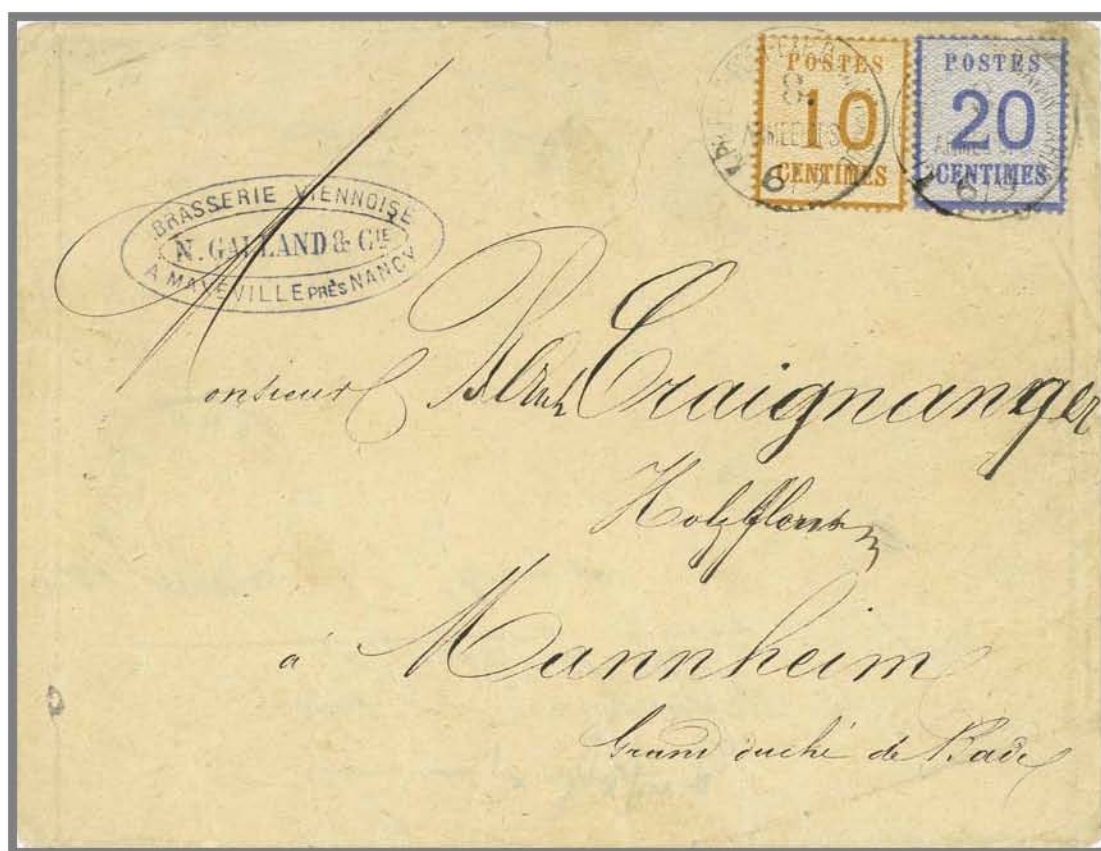 POSTES
10
CENTIMES
POSTES
20
CENTIMES
8.
6/7
BRASSERIE VIENNOISE
N. GALLAND & CIE
A MAXÉVILLE PRÈS NANCY
Monsieur Craignanger
à Mannheim
Grand duché de Bade